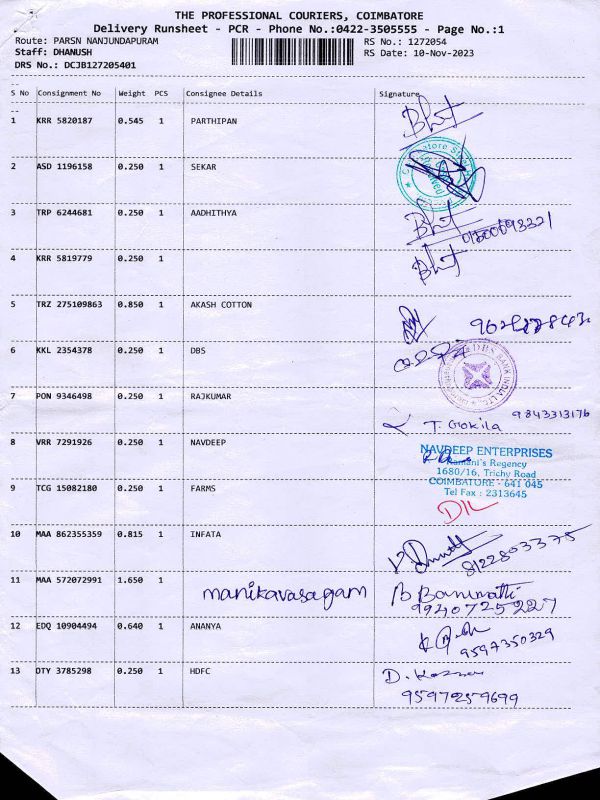 THE PROFESSIONAL COURIERS, COIMBATORE
Delivery Runsheet - PCR - Phone No.:0422-3505555 - Page No.:1
Route: PARSN NANJUNDAPURAM RS No.: 1272054
Staff: DHANUSH RS Date: 10-Nov-2023
DRS No.: DCJB127205401
S No Consignment No Weight PCS Consignee Details Signature
1 KRR 5820187 0.545 1 PARTHIPAN
2 ASD 1196158 0.250 1 SEKAR
3 TRP 6244681 0.250 1 AADHITHYA
4 KRR 5819779 0.250 1
5 TRZ 275109863 0.850 1 AKASH COTTON
6 KKL 2354378 0.250 1 DBS
DBS BANK INDIA LTD.
7 PON 9346498 0.250 1 RAJKUMAR
9843313176
T. Gokila
8 VRR 7291926 0.250 1 NAVDEEP
NAVDEEP ENTERPRISES
Ramani's Regency
1680/16, Trichy Road
COIMBATORE - 641 045
Tel Fax : 2313645
9 TCG 15082180 0.250 1 FARMS
10 MAA 862355359 0.815 1 INFATA
8122803375
11 MAA 572072991 1.650 1 manikavasagam B Banumathi
9940725227
12 EDQ 10904494 0.640 1 ANANYA
9597350329
13 DTY 3785298 0.250 1 HDFC
9597259699